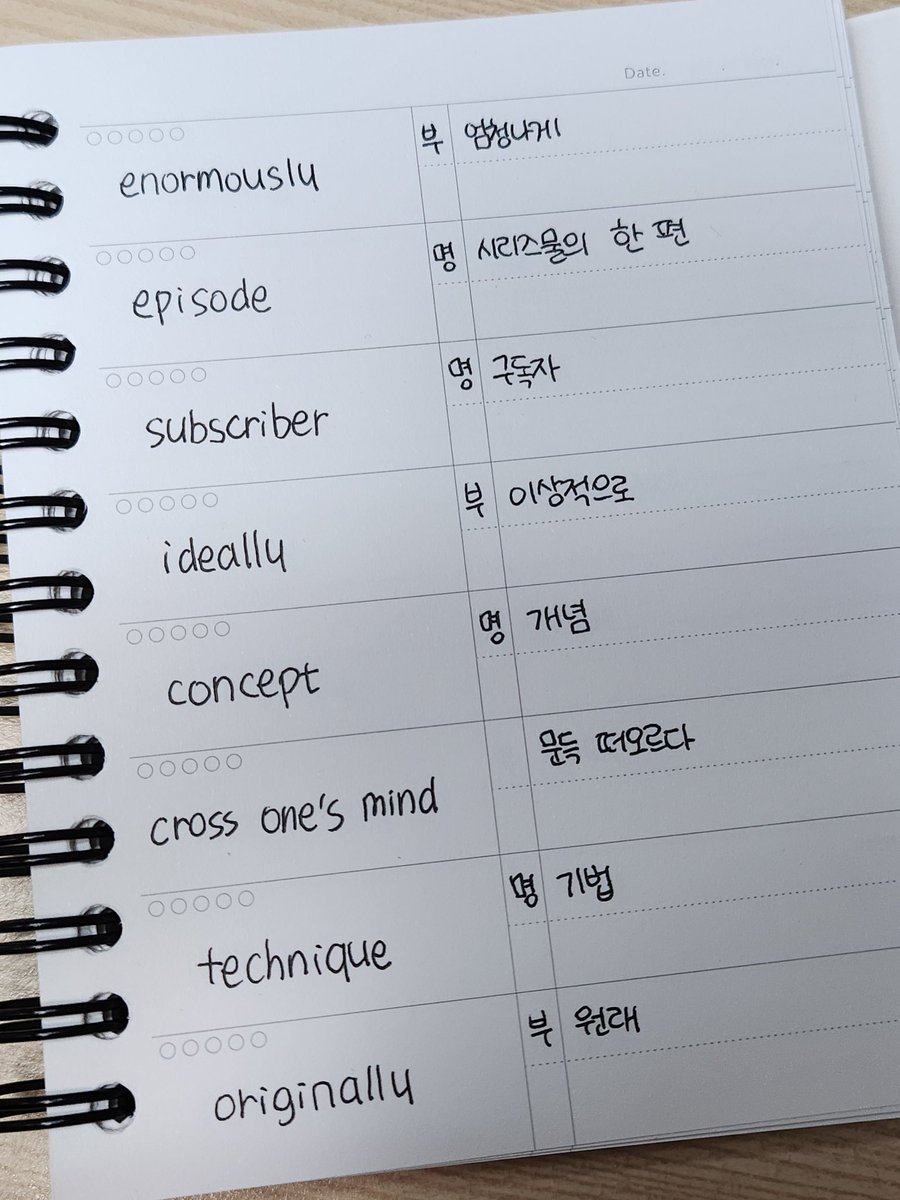 Date.
enormously 부 엄청나게
episode 명 시리즈물의 한 편
subscriber 명 구독자
ideally 부 이상적으로
concept 명 개념
cross one's mind 문득 떠오르다
technique 명 기법
originally 부 원래